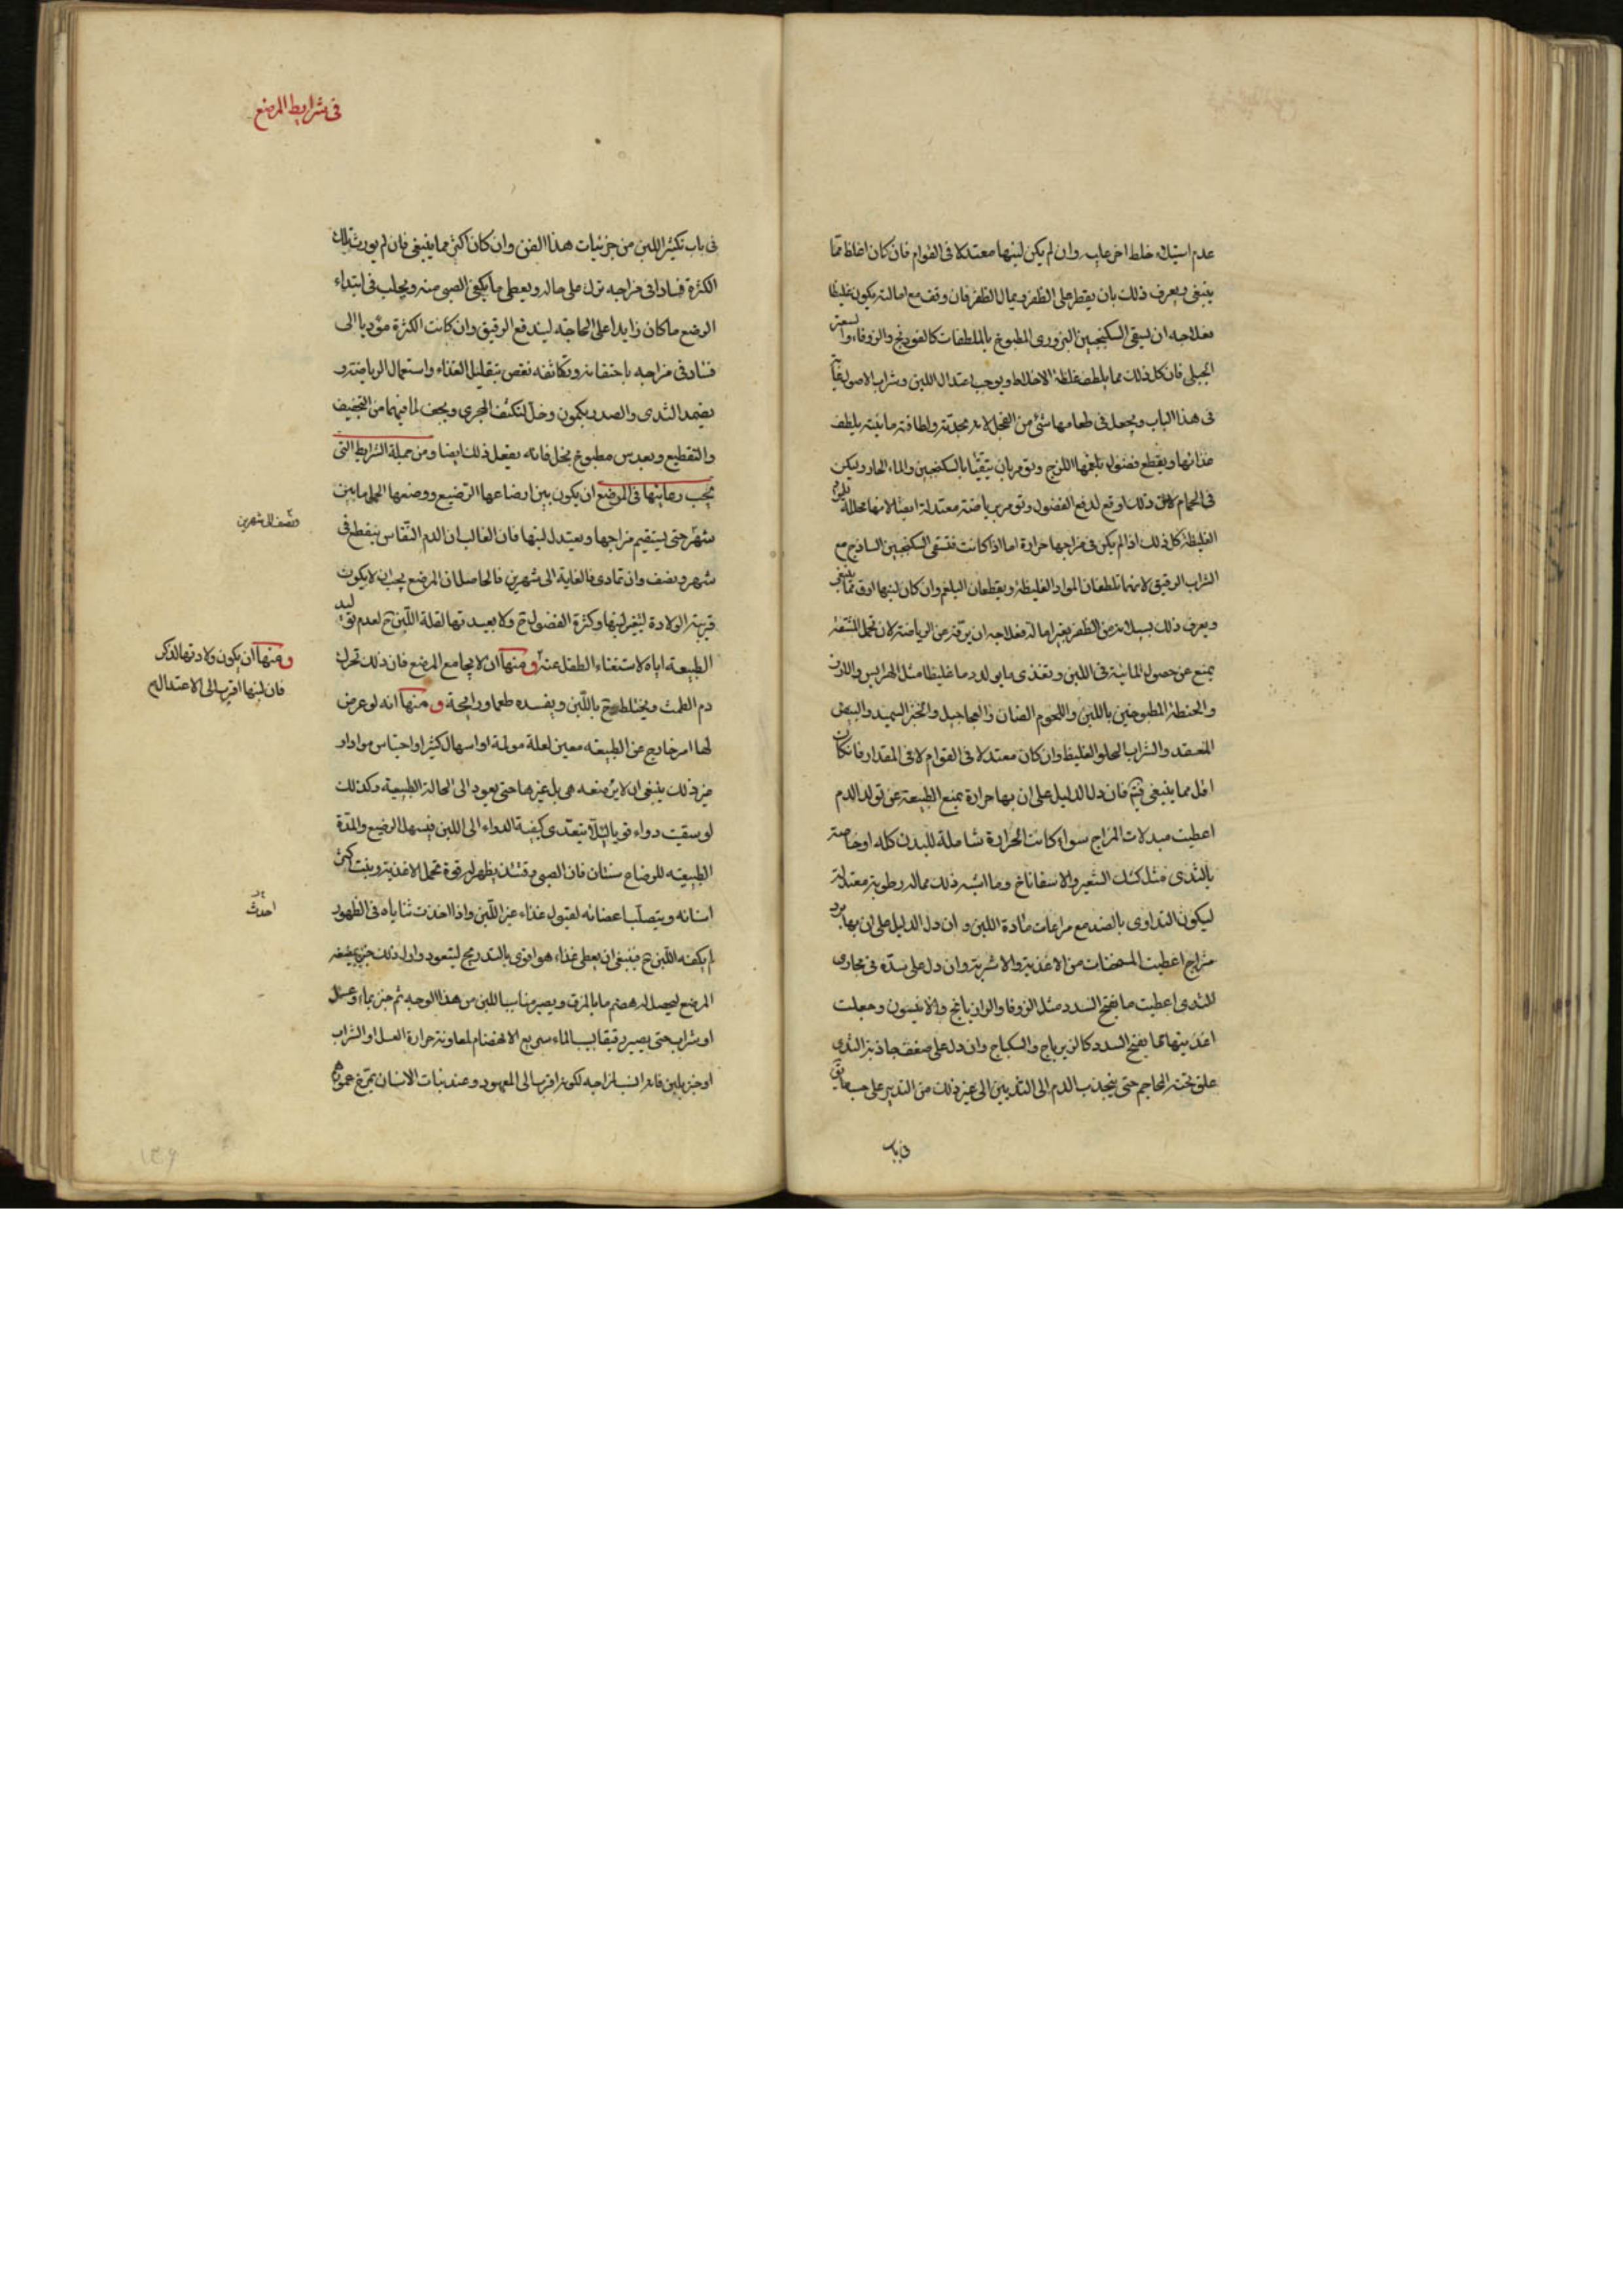 عدم استيلاء خلط اخر عليه وان لم يكن لبنها معتدلا فى القوام فان كان اغلظ مما
ينبغى ويعرف ذلك بان يقطر على الظفر ويمال الظفر فان وقف مع امالته يكون غليظا
فعلاجه ان يسقى السكنجبين البزورى المطبوخ بالملطفات كالفودنج والزوفاء والسعتر
الجبلى فان كل ذلك مما يلطف غلظة الاخلاط ويوجب اعتدال اللبن وشراب الاصول
فى هذا الباب ويجعل فى طعامها شئ من الفجل لانه بحدته ولطافة مائيته يلطف
غذائها ويقطع فضوله بلغمها اللزج وتومر بان يتقيأ بالسكنجبين والماء الحار وليكن
فى الحمام لان ذلك اوقع لدفع الفضول وتومر برياضة معتدلة ايضا لانها محللة
الغليظة كل ذلك اذا لم يكن فى مزاجها حرارة اما اذا كانت فتسقى السكنجبين الساذج مع
الشراب الرقيق لانهما يلطفان المواد الغليظة ويقطعان البلغم وان كان لبنها ارق مما ينبغى
ويعرف ذلك بسيلانه من الظفر بغير امالة فعلاجه ان يرفه عن الرياضة لان
يمنع عن حصول المائية فى اللبن وتغذى ما يولد دما غليظا مثل الهرايس والارز
والحنطة المطبوخين باللبن واللحوم الضان والعجاجيل والخبز السميد والبيض
المعقد والشراب الحلو الغليظ وان كان معتدلا فى القوام لا فى المقدار فان كان
اقل مما ينبغى فان دل الدليل على ان بها حرارة يمنع الطبيعة عن تولد الدم
اعطيت مبدلات المزاج سواء كانت الحرارة شاملة للبدن كله او خاصة
بالثدى مثل كشك الشعير والاسفاناخ وما اشبه ذلك مما له رطوبة معتدلة
ليكون التداوى بالضد مع مراعات مادة اللبن وان دل الدليل على ان بها برد
مزاج اعطيت المسخنات من الاغذية والاشربة وان دل على سدة فى مجارى
الثدى اعطيت ما يفتح السدد مثل الزوفا والرازيانج والانيسون وجعلت
اغذيتها مما يفتح السدد كالزيرباج والسكباج وان دل على ضعف جاذبة الثدى
علق تحته المحاجم حتى ينجذب الدم الى الثديين الى غير ذلك من التدبير على حسب ما
فى باب
فى شرايط المرضع
فى باب تكثير اللبن من جزئيات هذا الفن وان كان اكثر مما ينبغى فان لم يورث تلك
الكثرة فسادا فى مزاجه ترك على حاله ويعطى ما يكفى الصبى منه ويحلب فى ابتداء
الرضع ما كان زايدا على الحاجة ليندفع الرقيق وان كانت الكثرة مؤديا الى
فساد فى مزاجه باحتقانه وتكاثفه نقص بتقليل الغذاء واستعمال الرياضة و
يضمد الثدى والصدر بكمون وخل لتكثف المجرى ويجف لما فيهما من التجفيف
والتقطيع وبعدس مطبوخ بخل فانه يفعل ذلك ايضا ومن جملة الشرايط التى
يجب رعايتها فى المرضع ان يكون بين ارضاعها الرضيع ووضعها الحمل ما بين
شهر حتى يستقيم مزاجها ويعتدل لبنها فان الغالب ان الدم النفاس ينقطع فى
ونصف الى شهرين
شهر ونصف وان تمادى فالغاية الى شهرين فالحاصل ان المرضع يجب ان لا يكون
قريبة الولادة لتغير لبنها وكثرة الفضول ح ولا بعيدتها لقلة اللبن ح لعدم توليد
الطبيعة اياه لاستغناء الطفل عنه ومنها ان لا يجامع المرضع فان ذلك تحرك
ومنها ان يكون ولادتها لذكر
فان لبنها اقرب الى الاعتدال
دم الطمث ويختلط ح باللبن ويفسده طعما ورائحة ومنها انه لو عرض
لها امر خارج عن الطبيعة معين لعلة مولمة او اسهال كثير او احتباس مواد او
غير ذلك ينبغى ان لا يرضعه هى بل غيرها حتى يعود الى الحالة الطبيعية وكذلك
لو سقيت دواء قويا لئلا يتعدى كيفية الدواء الى اللبن فيسهل الرضيع والمدة
الطبيعية للرضاع سنتان فان الصبى وقتئذ يظهر له قوة تحمل الاغذية وينبت اكثر
اسنانه ويتصلب اعضائه لقبول غذاء غير اللبن واذا اخذت ثناياه فى الظهور
احدث
لم يكفه اللبن ح فينبغى ان يعطى غذاء هو اقوى بالتدريج ليتعود واول ذلك خبز يمضغه
المرضع ليحصل له هضم ما بالمزق ويصير مناسبا للبن من هذا الوجه ثم خبز بماء وعسل
او شراب حتى يصير رقيقا بسبب الماء سريع الانهضام لمعاونة حرارة العسل او الشراب
او خبز بلبن فانه انسب لمزاجه لكونه اقرب الى المعهود وعند نبات الاسنان يمرخ عموره